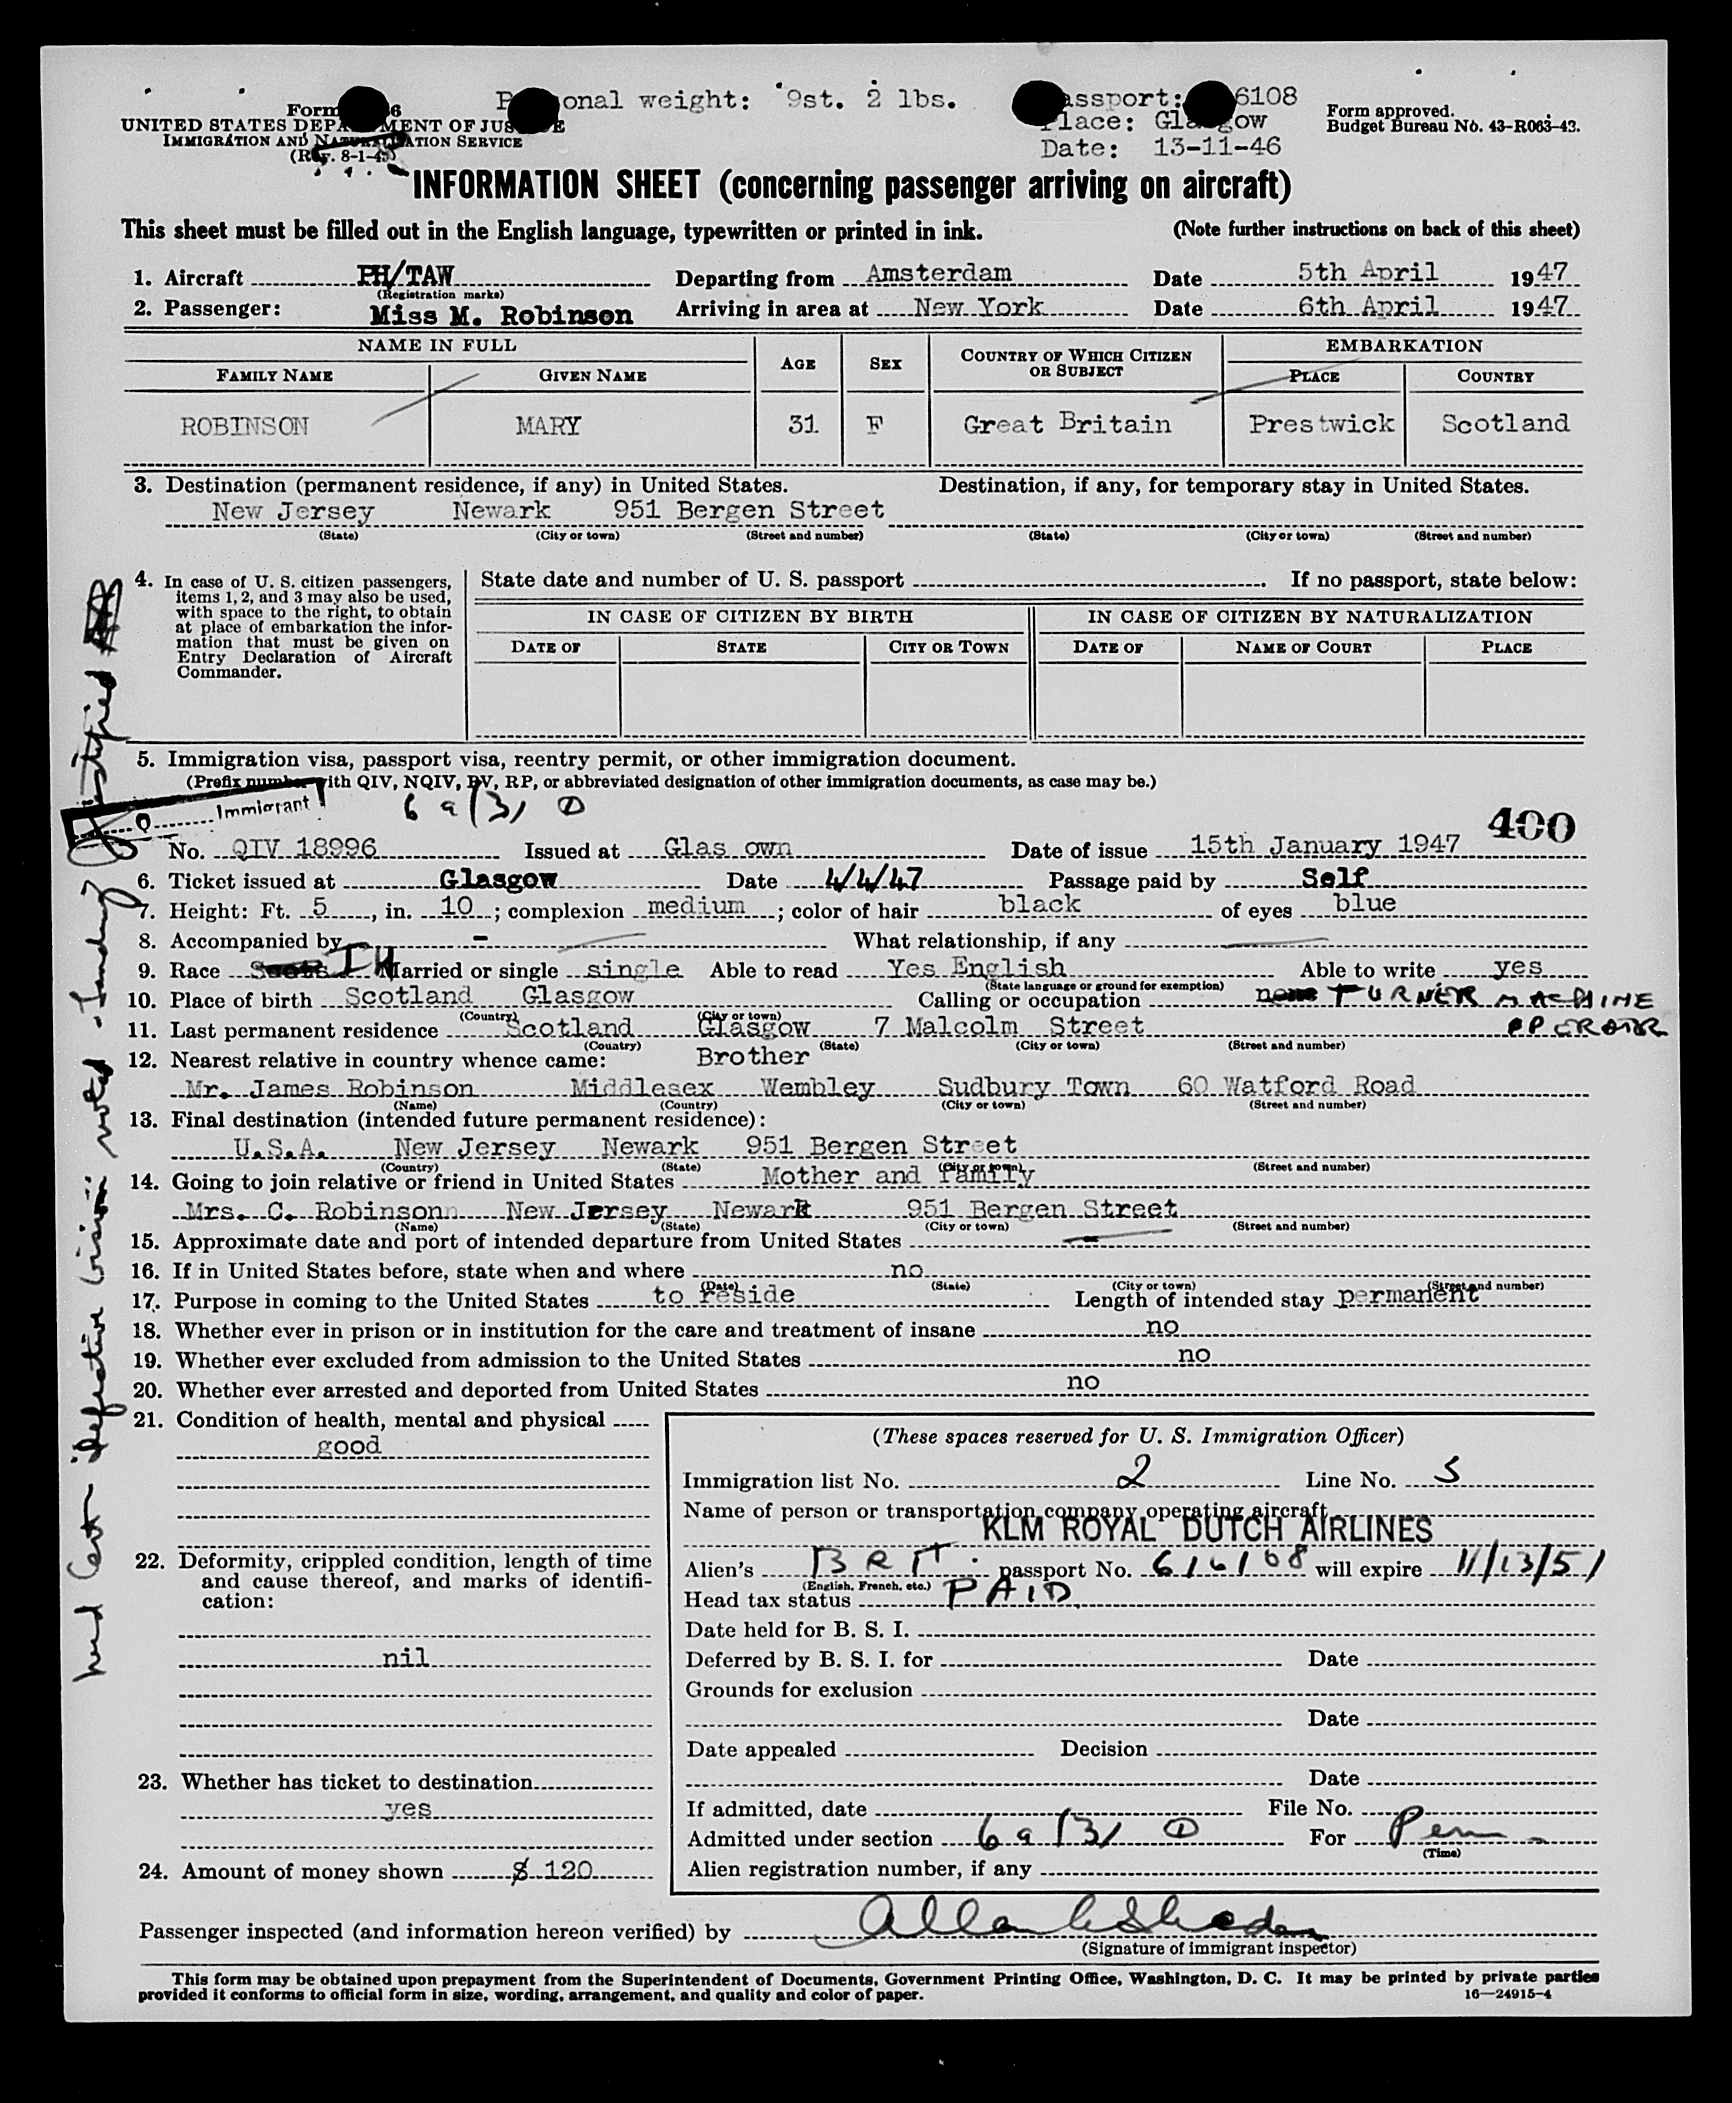 onal weight: 9st. 2 lbs.
assport: 6108
Place: Glasgow
Date: 13-11-46
Form
UNITED STATES DEPARTMENT OF JUSTICE
IMMIGRATION AND NATURALIZATION SERVICE
(Rev. 8-1-45)
Form approved.
Budget Bureau No. 43-R063-43.
INFORMATION SHEET (concerning passenger arriving on aircraft)
This sheet must be filled out in the English language, typewritten or printed in ink. (Note further instructions on back of this sheet)
1. Aircraft PH/TAW Departing from Amsterdam Date 5th April 1947
(Registration marks)
2. Passenger: Miss M. Robinson Arriving in area at New York Date 6th April 1947
NAME IN FULL AGE SEX COUNTRY OF WHICH CITIZEN OR SUBJECT EMBARKATION
FAMILY NAME GIVEN NAME PLACE COUNTRY
ROBINSON MARY 31 F Great Britain Prestwick Scotland
3. Destination (permanent residence, if any) in United States. Destination, if any, for temporary stay in United States.
New Jersey Newark 951 Bergen Street
(State) (City or town) (Street and number) (State) (City or town) (Street and number)
4. In case of U. S. citizen passengers, items 1, 2, and 3 may also be used, with space to the right, to obtain at place of embarkation the information that must be given on Entry Declaration of Aircraft Commander.
State date and number of U. S. passport . If no passport, state below:
IN CASE OF CITIZEN BY BIRTH IN CASE OF CITIZEN BY NATURALIZATION
DATE OF STATE CITY OR TOWN DATE OF NAME OF COURT PLACE
5. Immigration visa, passport visa, reentry permit, or other immigration document.
(Prefix number with QIV, NQIV, PV, RP, or abbreviated designation of other immigration documents, as case may be.)
Q Immigrant
6 a (3) ①
400
No. QIV 18996 Issued at Glas own Date of issue 15th January 1947
6. Ticket issued at Glasgow Date 4/4/47 Passage paid by Self
7. Height: Ft. 5, in. 10; complexion medium; color of hair black of eyes blue
8. Accompanied by - What relationship, if any
9. Race Scots Married or single single Able to read Yes English Able to write yes
(State language or ground for exemption)
10. Place of birth Scotland Glasgow Calling or occupation none TURNER MACHINE OPERATOR
(Country) (City or town)
11. Last permanent residence Scotland Glasgow 7 Malcolm Street
(Country) (State) (City or town) (Street and number)
12. Nearest relative in country whence came: Brother
Mr. James Robinson Middlesex Wembley Sudbury Town 60 Watford Road
(Name) (Country) (City or town) (Street and number)
13. Final destination (intended future permanent residence):
U.S.A. New Jersey Newark 951 Bergen Street
(Country) (State) (City or town) (Street and number)
14. Going to join relative or friend in United States Mother and family
Mrs. C. Robinson New Jersey Newark 951 Bergen Street
(Name) (State) (City or town) (Street and number)
15. Approximate date and port of intended departure from United States -
16. If in United States before, state when and where no
(Date) (State) (City or town) (Street and number)
17. Purpose in coming to the United States to reside Length of intended stay permanent
18. Whether ever in prison or in institution for the care and treatment of insane no
19. Whether ever excluded from admission to the United States no
20. Whether ever arrested and deported from United States no
21. Condition of health, mental and physical
good
22. Deformity, crippled condition, length of time and cause thereof, and marks of identification:
nil
23. Whether has ticket to destination
yes
24. Amount of money shown $ 120
(These spaces reserved for U. S. Immigration Officer)
Immigration list No. 2 Line No. 3
Name of person or transportation company operating aircraft
KLM ROYAL DUTCH AIRLINES
Alien's BRIT. passport No. 616108 will expire 11/13/51
(English, French, etc.)
Head tax status PAID
Date held for B. S. I.
Deferred by B. S. I. for Date
Grounds for exclusion
Date
Date appealed Decision
Date
If admitted, date File No.
Admitted under section 6 a (3) ① For Perm
(Time)
Alien registration number, if any
Passenger inspected (and information hereon verified) by
(Signature of immigrant inspector)
This form may be obtained upon prepayment from the Superintendent of Documents, Government Printing Office, Washington, D. C. It may be printed by private parties
provided it conforms to official form in size, wording, arrangement, and quality and color of paper.
16—24915-4
Med Cert Defective vision noted Landing